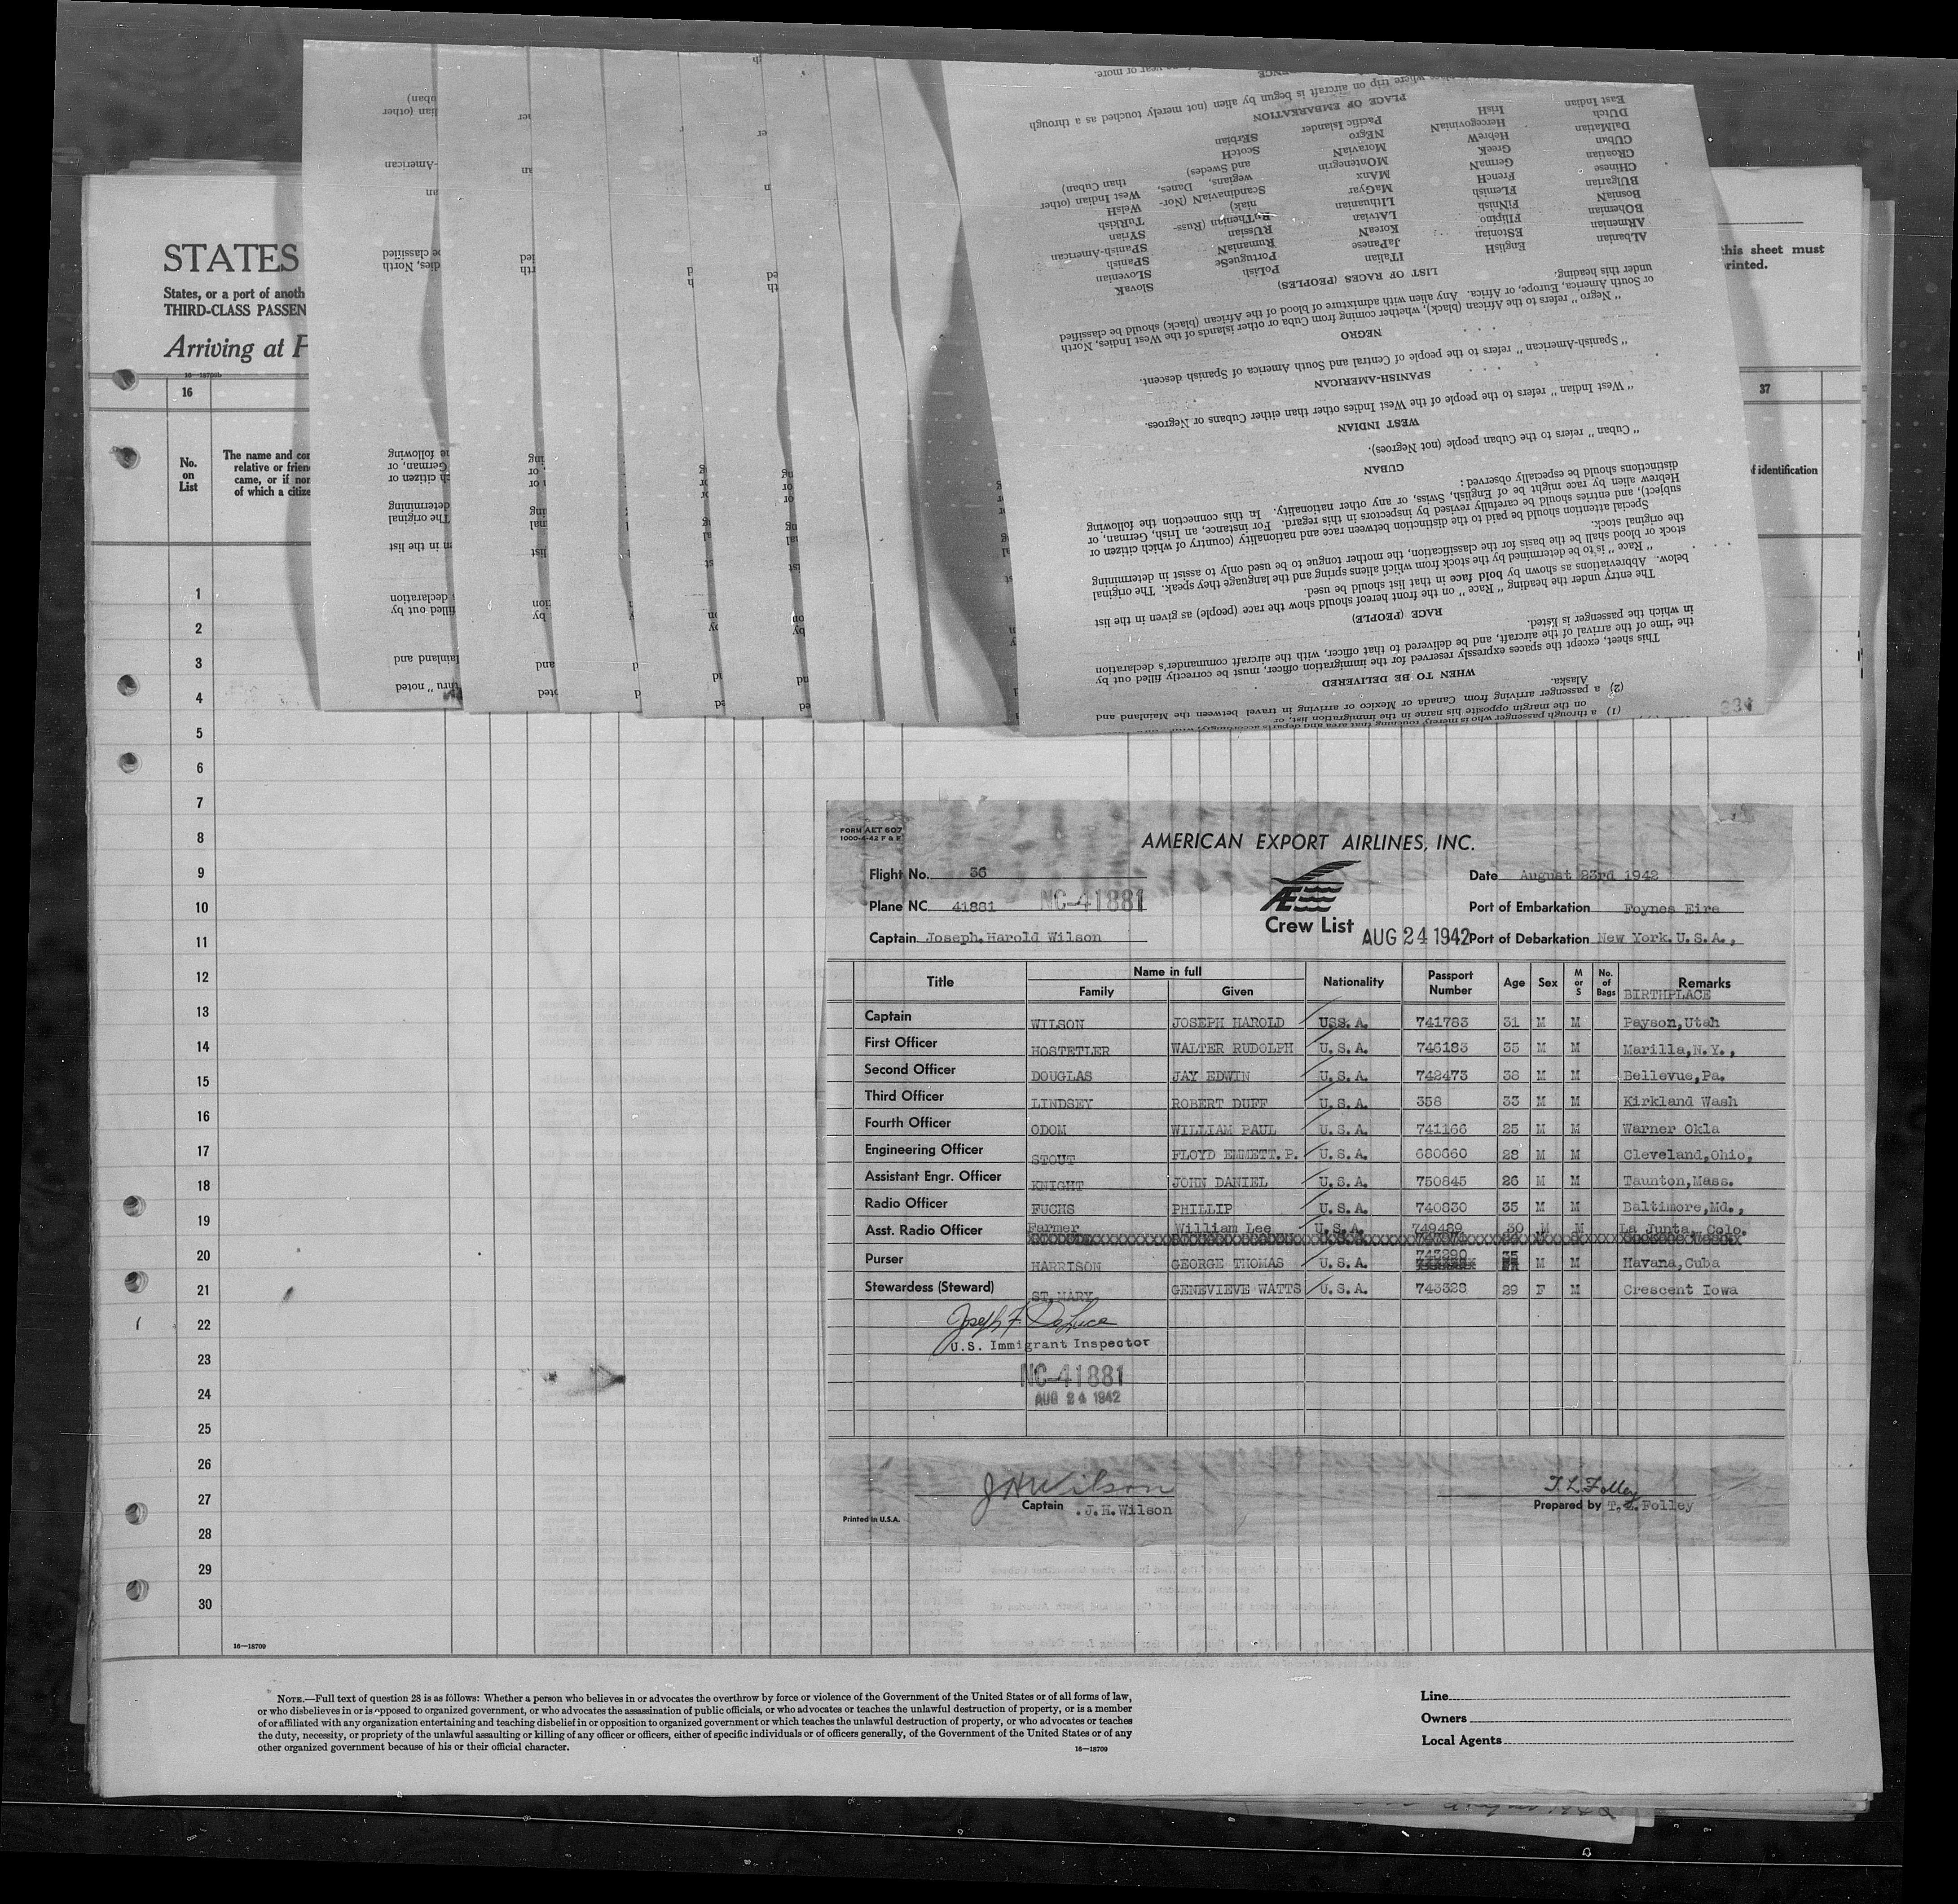 STATES
States, or a port of anoth
THIRD-CLASS PASSEN
Arriving at F
this sheet must
printed.
16
37
No.
on
List
The name and con
relative or frien
came, or if non
of which a citize
f identification
1
2
3
4
5
6
7
8
9
10
11
12
13
14
15
16
17
18
19
20
21
22
23
24
25
26
27
28
29
30
(1) a through passenger who is merely touching that area and departs accordingly,
on the margin opposite his name in the immigration list, or
(2) a passenger arriving from Canada or Mexico or arriving in travel between the Mainland and
Alaska.
WHEN TO BE DELIVERED
This sheet, except the spaces expressly reserved for the immigration officer, must be correctly filled out by
the time of the arrival of the aircraft, and be delivered to that officer, with the aircraft commander's declaration
in which the passenger is listed.
RACE (PEOPLE)
The entry under the heading "Race" on the front hereof should show the race (people) as given in the list
below. Abbreviations as shown by bold face in that list should be used.
"Race" is to be determined by the stock from which aliens spring and the language they speak. The original
stock or blood shall be the basis for the classification, the mother tongue to be used only to assist in determining
the original stock.
Special attention should be paid to the distinction between race and nationality (country of which citizen or
subject), and entries should be carefully revised by inspectors in this regard. For instance, an Irish, German, or
Hebrew alien by race might be of English, Swiss, or any other nationality. In this connection the following
distinctions should be especially observed:
CUBAN
"Cuban" refers to the Cuban people (not Negroes).
WEST INDIAN
"West Indian" refers to the people of the West Indies other than either Cubans or Negroes.
SPANISH-AMERICAN
"Spanish-American" refers to the people of Central and South America of Spanish descent.
NEGRO
"Negro" refers to the African (black), whether coming from Cuba or other islands of the West Indies, North
or South America, Europe, or Africa. Any alien with admixture of blood of the African (black) should be classified
under this heading.
LIST OF RACES (PEOPLES)
ALbanian
ARmenian
BOhemian
BosniaN
BUlgarian
CHinese
CRoatian
CUbaN
DalMatian
DUtch
East Indian
EnglisH
EStonian
FIlipino
FiNnish
FLemish
FrencH
GermaN
GreeK
HebreW
HercegoviniaN
IrisH
ITalian
JaPanese
KoreaN
LAtvian
LIthuanian
MaGyar
MAnx
MOntenegrin
MoraviaN
NEgro
Pacific Islander
PoLish
PortugueSe
RumaniaN
RUssian
RuThenian (Russ-
niak)
ScandinaviaN (Nor-
wegians, Danes,
and Swedes)
ScotcH
SErbian
SlovaK
SLovenian
SPanisH
SPanish-American
SYrian
TuRkish
WelsH
West Indian (other
than Cuban)
PLACE OF EMBARKATION
where trip on aircraft is begun by alien (not merely touched as a through
334
FORM AET 607
1000-4-42 F & F
AMERICAN EXPORT AIRLINES, INC.
Flight No. 36
Date August 23rd 1942
Plane NC 41881 NC-41881
AE
Port of Embarkation Foynes Eire
Crew List
Captain Joseph.Harold Wilson
AUG 24 1942 Port of Debarkation New York.U.S.A.,
Title Name in full Nationality Passport Number Age Sex M or S No. of Bags Remarks
Family Given BIRTHPLACE
Captain WILSON JOSEPH HAROLD USS.A. 741783 31 M M Payson,Utah
First Officer HOSTETLER WALTER RUDOLPH U.S.A. 746183 35 M M Marilla,N.Y.,
Second Officer DOUGLAS JAY EDWIN U.S.A. 742473 38 M M Bellevue,Pa.
Third Officer LINDSEY ROBERT DUFF U.S.A. 358 33 M M Kirkland Wash
Fourth Officer ODOM WILLIAM PAUL U.S.A. 741166 25 M M Warner Okla
Engineering Officer STOUT FLOYD EMMETT.P. U.S.A. 680660 28 M M Cleveland,Ohio,
Assistant Engr. Officer KNIGHT JOHN DANIEL U.S.A. 750845 26 M M Taunton,Mass.
Radio Officer FUCHS PHILLIP U.S.A. 740830 35 M M Baltimore,Md.,
Asst. Radio Officer Farmer William Lee U.S.A. 749489 30 M M La Junta, Colo.
Purser HARRISON GEORGE THOMAS U.S.A. 743290 35 M M Havana,Cuba
Stewardess (Steward) ST.MARY GENEVIEVE WATTS U.S.A. 743328 29 F M Crescent Iowa
Joseph F. DeLuca
U.S. Immigrant Inspector
NC-41881
AUG 24 1942
JHWilson
T.L.Folley
Captain .J.H.Wilson
Prepared by T.L.Folley
Printed in U.S.A.
16—18709
NOTE.—Full text of question 28 is as follows: Whether a person who believes in or advocates the overthrow by force or violence of the Government of the United States or of all forms of law,
or who disbelieves in or is opposed to organized government, or who advocates the assassination of public officials, or who advocates or teaches the unlawful destruction of property, or is a member
of or affiliated with any organization entertaining and teaching disbelief in or opposition to organized government or which teaches the unlawful destruction of property, or who advocates or teaches
the duty, necessity, or propriety of the unlawful assaulting or killing of any officer or officers, either of specific individuals or of officers generally, of the Government of the United States or of any
other organized government because of his or their official character.
16—18709
Line
Owners
Local Agents